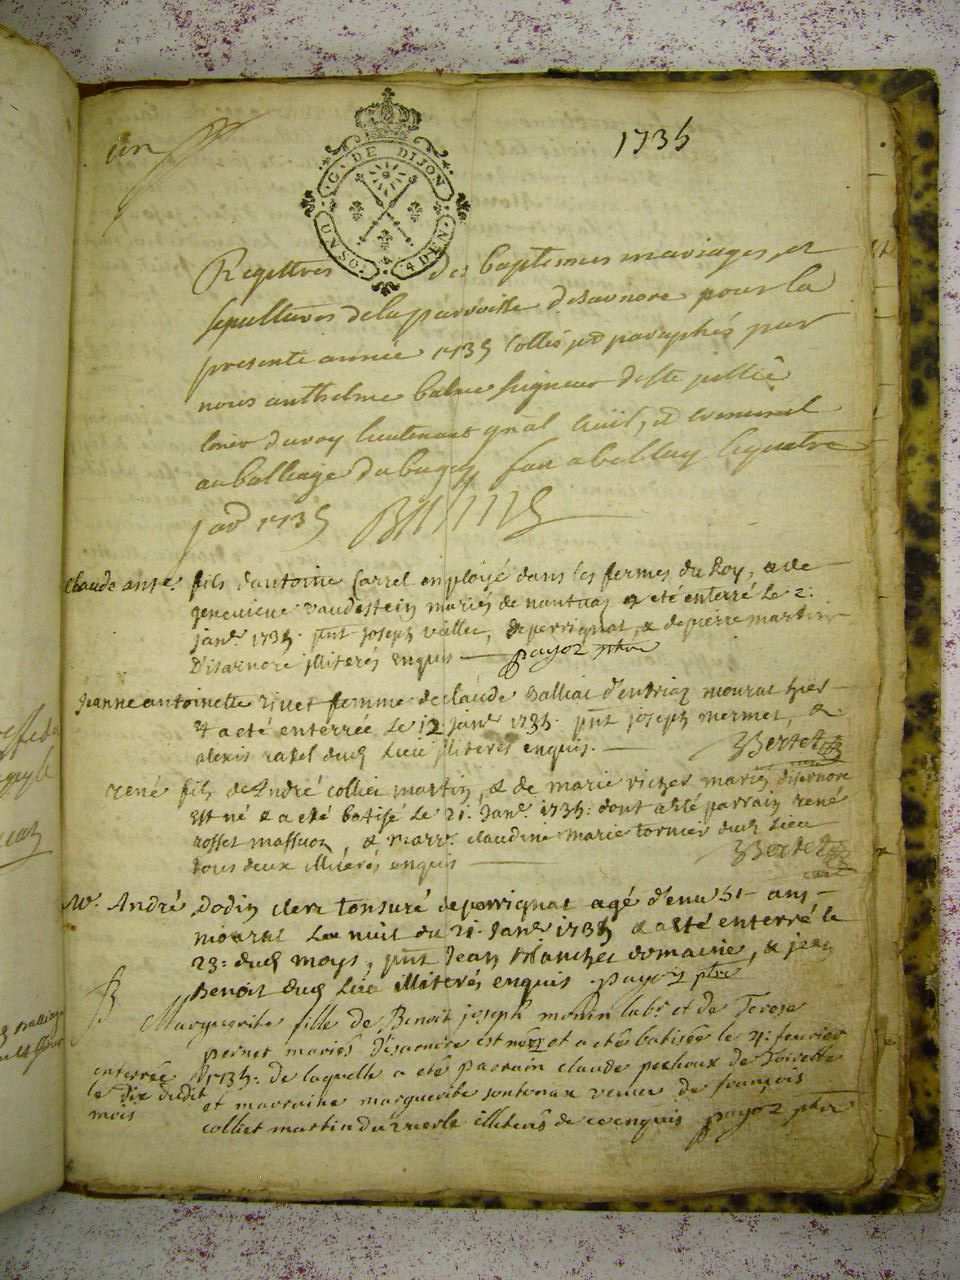 un
1735
G. DE DIJON
UN SO. 4 DEN.
Regettres des baptesmes mariages, et
sepultures de la parroisse disarnore pour la
presente année 1735 cottés et paraphés par
nous anthelme balme seigneur de
du roy lieutenant gnal civil, et criminel
au balliage du bugey fait a belley le quatre
janv 1735 Balme
Claude ant.e fils d'antoine Carrel employé dans les fermes du Roy, & de
genevieve mariés de nantua a eté enterré le 2.
janv. 1735. pnt joseph vallec, de perrignat, & de pierre martin
D'isarnore illiterés enquis payoz ptre
Jeanne antoinette rivet femme de claude Balliat d'entriaz mourut hier
& a eté enterrée le 12. janv. 1735. pnt joseph mermet, &
alexis ravel dud. lieu illiterés enquis. Bertet
rené fils de André colliet martin, & de marie mariés disarnore
est né & a eté batisé le 21. janv. 1735: dont a eté parrain rené
rosset massuon, & marr. claudine marie tornier dud. lieu
tous deux illiterés enquis Bertet
Mr. André Dodin clerc tonsuré de perrignat agé d'env. 51 ans
mourut la nuit du 21. janv. 1735 & a eté enterré le
23: dud. moys, pnt jean blanchet domaine, & jean
Benoit dud. lieu illiterés enquis. payoz ptre
B Marguerite fille de Benoit joseph monin lab. et de Terese
pernet mariés D'isarnore est née et a eté batisée le 4. fevrier
1735. de laquelle a eté parrain claude pechoux de
et marraine marguerite sontonax veuve de françois
colliet martin du illiterés de ce enquis payoz ptre
enterrée
le dix dudit
mois